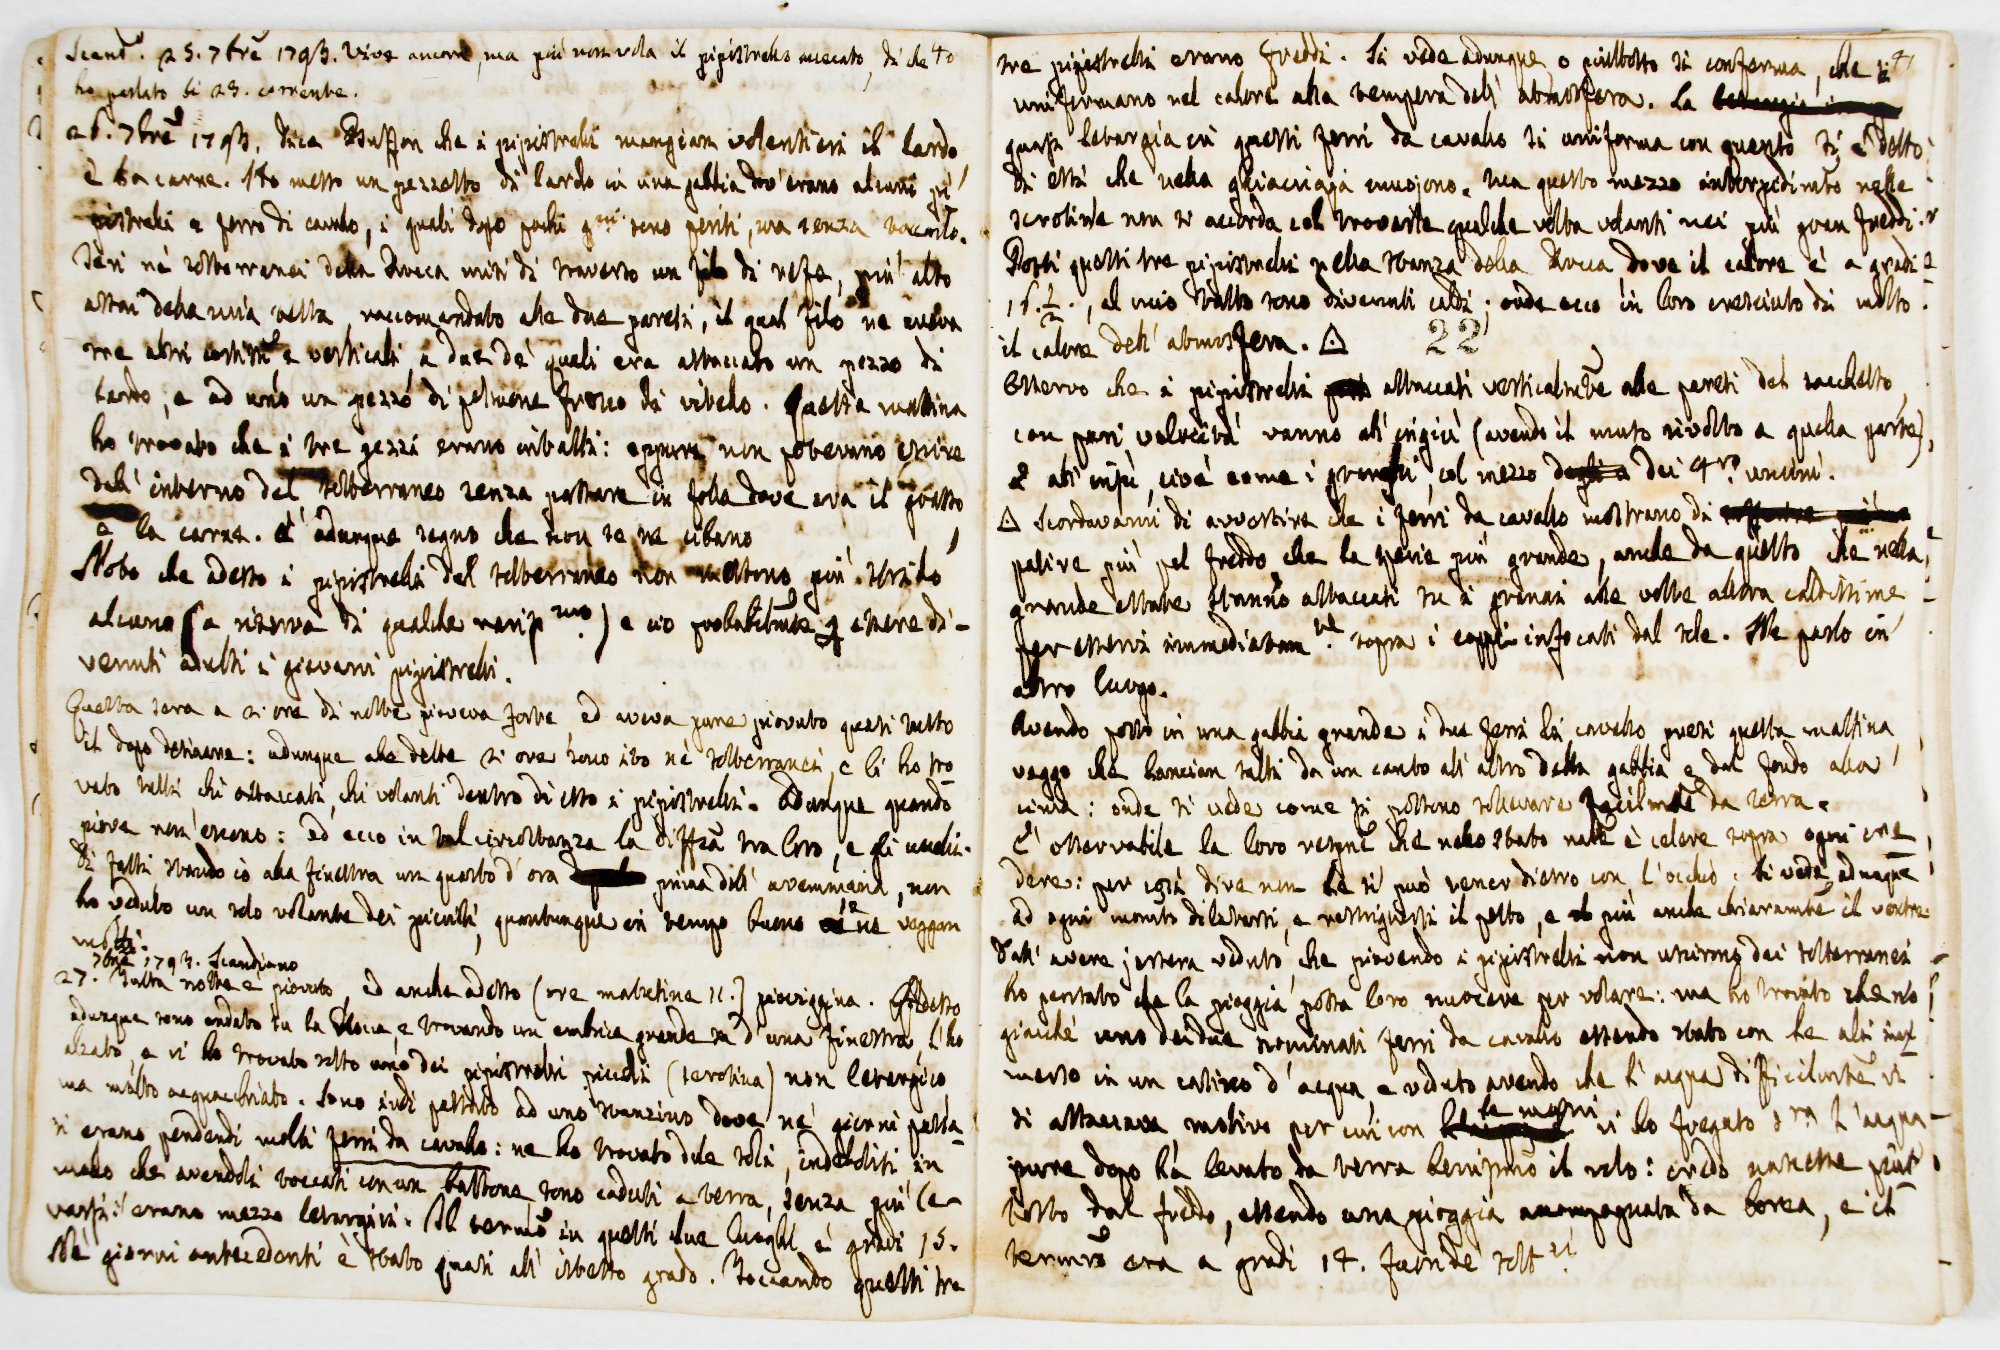 Scand.º 25. 7bre 1793. Vive ancora, ma più non vola il pipistrello accecato, di che 40
ho parlato li 23. corrente.
26. 7bre 1793. Dice Buffon che i pipistrelli mangian volentieri il lardo
e la carne. Ho messo un pezzetto di lardo in una gabbia dov'erano alcuni pi
pistrelli a ferro di cavallo, i quali dopo pochi g.ni sono periti, ma senza toccarlo.
Jeri nè sotterranei della Rocca misi di traverso un filo di refe, più alto
assai della mia testa, raccomandato alle due pareti, il qual filo ne aveva
tre altri verticali, a due de' quali era attaccato un pezzo di
lardo, e ad uno un pezzo di polmone fresco di vitello. Questa mattina
ho trovato che i tre pezzi erano intatti: eppure non potevano uscire
dall' interno del sotterraneo senza passare in folla dove era il grasso
e la carne. È adunque segno che non se ne cibano
Noto che adesso i pipistrelli del sotterraneo non mettono più strido
alcuno (a riserva di qualche rariss.mo) e ciò probabilmte p essere di-
venuti adulti i giovani pipistrelli.
Questa sera a 21 ore di notte pioveva forte ed aveva pure piovuto quasi tutto
il dopo desinare: adunque alle dette 21 ore sono ito nè sotterranei, e li ho tro
vato tutti, chi attaccati, chi volanti dentro di esso i pipistrelli. Adunque quando
piove non escono: ed ecco in tal circostanza la diffza tra loro, e gli uccelli.
Di fatti stando io alla finestra un quarto d'ora prima dell' avemmaria, non
ho veduto un solo volante dei piccoli, quantunque in tempo buono se ne veggan
molti.
7bre 1793. Scandiano
27. Tutta notte è piovuto, ed anche adesso (ore mattutine 11.) piovviggina. Adesso
adunque sono andato su la Rocca, e trovando un embrice grande su d'una finestra, l'ho
alzato, e vi ho trovato sotto uno dei pipistrelli piccoli (serotina) non letargico,
ma molto acquacchiato. Sono indi passato ad uno stanzino dove nè giorni passa
ti erano pendenti molti ferri da cavallo: ne ho trovato due soli, indeboliti in
modo che avendoli toccati con un bastone sono caduti a terra, senza più le-
varsi: erano mezzo letargici. Il termo in questi due luoghi è gradi 15.
Nè giorni antecedenti è stato quasi all' istesso grado. Toccando questi tre
tre pipistrelli erano freddi. Si vede adunque, o piuttosto si conferma, che si 41
uniformano nel calore alla tempera dell' atmosfera. La
quasi letargia in questi ferri da cavallo si uniforma con quanto si è detto
di essi che nella ghiacciaja muojono. Ma questo mezzo intorpidimto nelle
serotine non si accorda col trovarle qualche volta volanti nei più gran freddi.
Posti questi tre pipistrelli nella stanza della Rocca dove il calore è a gradi
16.½., al mio tatto sono divenuti caldi; onde ecco in loro cresciuto di molto
il calore dell' atmosfera. ⚠ 22
Osservo che i pipistrelli attaccati verticalmte alle pareti del sacchetto
con pari velocità vanno all' ingiù (avendo il muso rivolto a quella parte),
e all' insù, cioè come i granchi, col mezzo dei 4.ro uncini.
⚠ Scordavami di avvertire che i ferri da cavallo mostrano di
patire più pel freddo che la specie più grande, anche da questo che nella
grande estate stanno attaccati su i granai alle volte allora caldissime
per esservi immediatam.te sopra i coppi infocati dal sole. Ne parlo in
altro luogo.
Avendo posto in una gabbia grande i due ferri di cavallo presi questa mattina
veggo che lancian salti da un canto all' altro della gabbia e dal fondo alla
cima: onde si vede come si possono sollevare facilmte da terra.
È osservabile la loro respne che nello stato nale è celere sopra ogni cre
dere: per così dire non le si può tener dietro con l'occhio. Si vede adunque
ad ogni momto dilatarsi, e restrignersi il petto, e più anche chiaramte il ventre
Dall' avere jersera veduto, che piovendo i pipistrelli non uscirono dei sotterranei
ho pensato che la pioggia possa loro nuocere per volare: ma ho trovato che no
giacchè uno dei due nominati ferri da cavallo essendo stato con le ali
messo in un catino d'acqua, e veduto avendo che l'acqua difficilmte vi
si attaccava motivo per cui con le mani vi ho fregato s.ra l'acqua
pure dopo ha levato da terra benissmo il volo: credo nascesse più
tosto dal freddo, essendo una pioggia accompagnata da borea, e il
termro era a gradi 14. fuori de' sott.ei